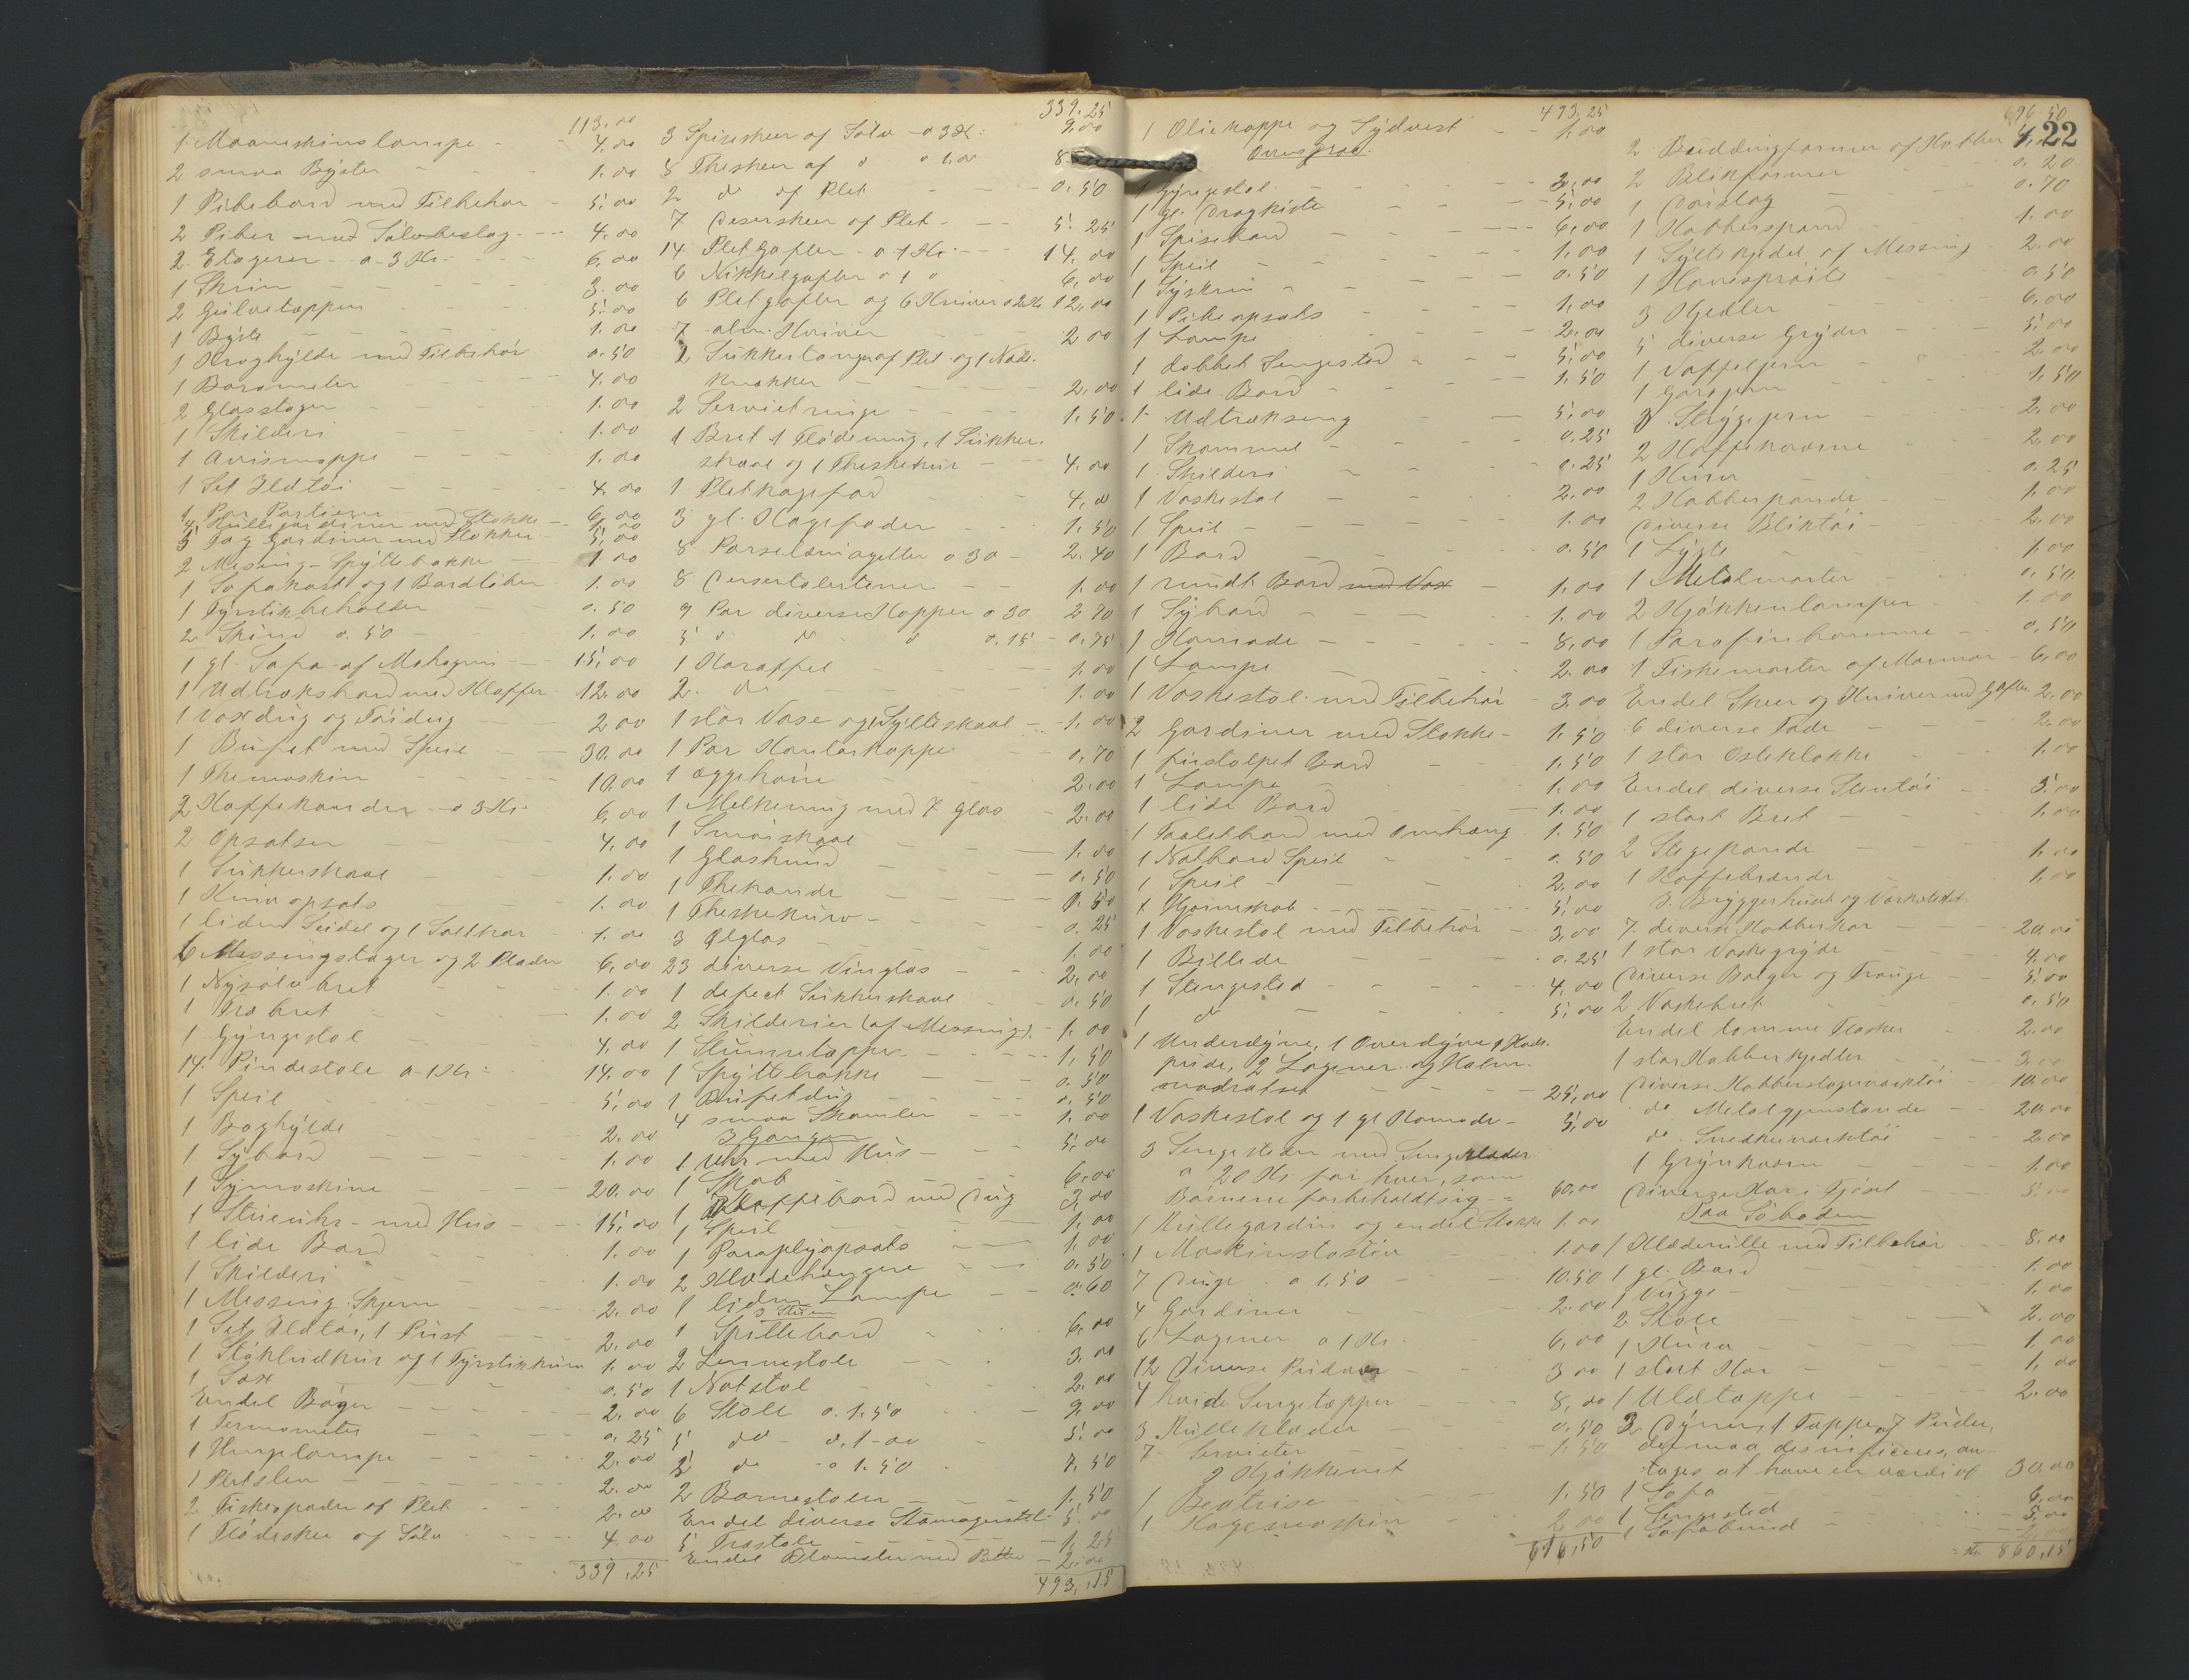 113.00
1 Maaneskinslampe - - 4.00
2 smaa Byster - - - 1.00
1 Pibebord med Tilbehør - 5.00
2 Piber med Sölvbeslag - - 4.00
2 Etagerer - a 3 Kr. - - 6.00
1 Skrin - - - - 3.00
2 Gulvtæpper - - - 5.00
1 Byste - - - - 1.00
1 Kroghylde med Tilbehör 0.50
1 Barometer - - - - 4.00
2 Glasstager - - - 1.00
1 Skilderi - - - 1.00
1 Avismappe - - - 1.00
1 Set Ildtöi - - - 4.00
1 Par Portierer - - 6.00
4 Rullegardiner med Stokke - 1.00
5 Fag Gardiner med Stokker - 5.00
2 Mesing-Spyttebakke - 1.00
1 Sofakost og 1 Bordlöber 1.00
1 Fyrstikbeholder - - 0.50
2 Skind 0.50 - - 1.00
1 gl. Sofa af Mahogni - 15.00
1 Udtræksbord med Klaffer 12.00
1 Voxdug og Töidug - - 2.00
1 Bufet med Speil - - 30.00
1 Themaskin - - - - 10.00
2 Kaffekander - a 3 Kr. 6.00
2 Opsatser - - - - 4.00
1 Sukkerskaal - - - 1.00
1 Knivopsats - - - 1.00
1 liden Seidel og 1 Saltkar 1.00
6 Messingstager og 2 Plader 6.00
1 Nysölvbret - - - 1.00
1 Træbret - - - - 1.00
1 Gyngestol - - - 4.00
14 Pindestole a 1 Kr. 14.00
1 Speil - - - - 5.00
1 Boghylde - - - 2.00
1 Sybord - - - - 1.00
1 Symaskine - - - 20.00
1 Stueuhr - med Hus - - 15.00
1 lide Bord - - - 1.00
1 Skilderi - - - 1.00
1 Messing Skjerm - - 2.00
1 Set Ildtöi, 1 Pust - - 2.00
1 og 1 Fyrstikkurv 1.00
1 Sax - - - - 0.50
Endel Bøger - - - 2.00
1 Termometer - - - 0.25
1 Hengelampe - - - 2.00
1 Pletslev - - - 2.00
2 Fiskespader af Plet - 2.00
1 Flödeskee af Sölv - - 4.00
339,25
339.25
3 Spiseskeer af Sölv - a 3 Kr. 9.00
8 Theskeer af do a 1.00 8
2 do af Plet - - - 0.50
7 Desertskeer af Plet - - 5.25
14 Pletgafler - a 1 Kr. - - 14.00
6 Nikkelgafler a 1 - 6.00
6 Pletgafler og 6 Kniver a 2 Kr. 12.00
7 alm. Kniver - - 2.00
2 Sukkertænger af Plet og 1 Nöde-
knækker - - - 2.00
2 Servietringe - - - 1.50
1 Bret 1 Flödemug, 1 Sukker-
skaal og 1 Theskekurv - - 4.00
1 Pletkagefad - - 4.00
3 gl. Kagefader - - - 1.50
8 a 30 - 2.40
8 Deserttalerkener - - 1.00
9 Par diverse Kopper a 30 2.70
5 do do a 0.15 - 0.75
1 Karaffel - - - - 1.00
2 do - - - - 1.00
1 stor Vase og 1 Syltéskaal - - 1.00
1 Par Kontorkopper - 0.70
1 Æggekone - - - 2.00
1 Melkemug med 7 glas - 2.00
1 Smörskaal - - - 1.00
1 Glashund - - - 0.50
1 Thekande - - - 0.50
1 Theskekurv - - - 0.25
3 Ølglas - - - 1.00
23 diverse Vinglas - - 2.00
1 defect Sukkerskaal - - 0.50
2 Skilderier (af Messing). - 1.00
1 Stumetæppe - - - 1.50
1 Spyttebakke - - - 0.50
1 Bufetdug - - - 0.50
4 smaa Skamler - - 1.00
I Gangen
1 Uhr med Hus - - - 5.00
1 Skab - - - - 6.00
1 Klaffebord med Dug 3.00
1 Speil - - - - 1.00
1 Paraplyopsats - - 1.00
2 Klædehængere - - 0.50
1 liden Lampe - - 0.60
I Stuen
1 Spillebord - - - 6.00
2 Lænestole - - - 3.00
1 Natstol - - - 2.00
6 Stole a 1.50 - - 9.00
5 do - a 1-00 - 5.00
5 do - a 1.50 - 7.50
2 Barnestoler - - - 1.50
Endel diverse 5.00
5 Træstole - - - 1.25
Endel Blomster med Potter - 2.00
493,25
493,25
1 Oliekappe og Sydvest - - 1.00
Ovenpaa.
1 Gyngestol - - - 2.00
1 gl. Dragkiste - - - 5.00
1 Spisebord - - - 6.00
1 Speil - - - - 1.00
1 Syskrin - - - 0.50
1 Pibeopsats - - - 1.00
1 Lampe - - - - 2.00
1 dobbelt Sengested - - 5.00
1 lide Bord - - - 1.50
1 Udtrækseng - - - 5.00
1 Skammel - - - 0.25
1 Skilderi - - - 0.25
1 Vaskestol - - - 2.00
1 Speil - - - - 1.00
1 Bord - - - - 0.50
1 rundt Bord med Vox - 1.00
1 Sybord - - - 1.00
1 Komode - - - 8,00
1 Lampe - - - 2.00
1 Vaskestol med Tilbehör - 3.00
2 Gardiner med Stokke - 1.50
1 firstolpet Bord - - 1.50
1 Lampe - - - 1.00
1 lide Bord - - - 1.00
1 Toaletbord med Omhæng 1.50
1 Natbord Speil - - - 0.50
1 Speil - - - - 2.00
1 Hjørneskab - - - 5.00
1 Vaskestol med Tilbehör - 3,00
1 Billede - - - 0.25
1 Sengested - - - 4,00
1 do - - - 5,00
1 Underdyne, 1 Overdyne 1 Hoved-
pude, 2 Lagener og Halm-
madratset - - - 25,00
1 Vaskestol og 1 gl Komode - 5,00
3 Sengesteder med Sengeklæder
a 20 Kr for hver, som
Børnene forbeholdt sig - = 60,00
1 Rullegardin og endel Stokke 1.00
1 - 1.00
7 Duge a 1.50 - - 10.50
4 Gardiner - - 2.00
6 Lagener a 1 Kr. - 6,00
12 Diverse - 3.00
4 hvide Sengetæpper - - 8,00
3 Rulleklæder - - 0.50
7 Servietter - - -
I Kjøkkenet
1 Beatrise - - - 1.50
1 Kagemaskin - - 2.00
696,50
696,50
2 Buddingformer af Kobber 4.
22
2 Blikformer - - 0.20
1 Dørslag - - - 0.70
1 Kobberspand - - 1.00
1 Syltekjedel af Messing 2.00
1 Havesprøite - - 0.50
3 Kjedler - - - 6.00
5 diverse Gryder - - 5.00
1 Vaffeljern - - 2.00
1 Gorojern - - 1.50
3 Strygejern - - 2.00
2 Kaffekværne - - 2.00
1 Kurv - - - 0.25
2 Kobberpande - - 1.00
Diverse Bliktöi - - 2.00
1 Lygte - - - 1.00
1 Metalmorter - - 0.50
2 Kjøkkenlamper - 1.00
1 Parafinkanne - - 0.50
1 Fiskemorter af Marmor - 6.00
Endel Skeer og Kniver med Gafler 2.00
6 diverse Fade - - 2.00
1 stor Osteklokke - - 1.00
Endel diverse Stentöi - - 5.00
1 stort Bret - - - 1.00
2 Stegepande - - 1.00
1 Kaffebrænder - - 1.00
I Bryggerhuset og Værkstedet
7 diverse Kobberkar - - 20.00
1 stor Vaskegryde - - 4.00
Diverse Balger og Trauge - 5.00
2 Vaskebret - - - 0.50
Endel tomme Flasker - - 2.00
1 stor Kobberkjedler - - 3.00
Diverse Kobberslagerværktöi - 10.00
do Metalgjenstande - 20.00
do Snedkerværktöi - - 2.00
1 Grynkværn - - 1.00
Diverse Kar i Fjöset - 5.00
Paa Söboden
1 Klæderulle med Tilbehör - 8.00
1 gl. Bord - - - 1.00
1 Vugge - - - 1.00
2 Stole - - - 2.00
1 Kurv - - - 1.00
1 stort Kar - - 1.00
1 Uldtæppe - - 2.00
3 Dyner, 1 Tæppe, 7 Puder,
der maa desinficeres, an-
tages at have en værdi af 30.00
1 Sofa - - - 6.00
1 Sengested - - - 5.00
1 - - 2.00
= Kr. 860,15